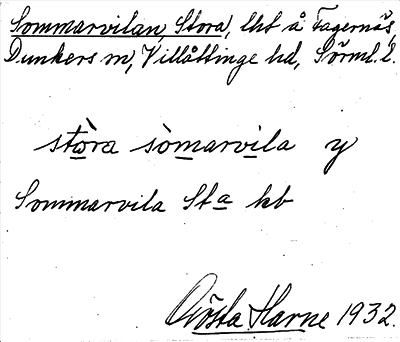 Sommarvilan, Stora, lht å Fagernäs,
Dunkers sn, Villåttinge hd, Sörml. l.
stòra sòmarvila y
Sommarvila Sta kb
Gösta Harne 1932.